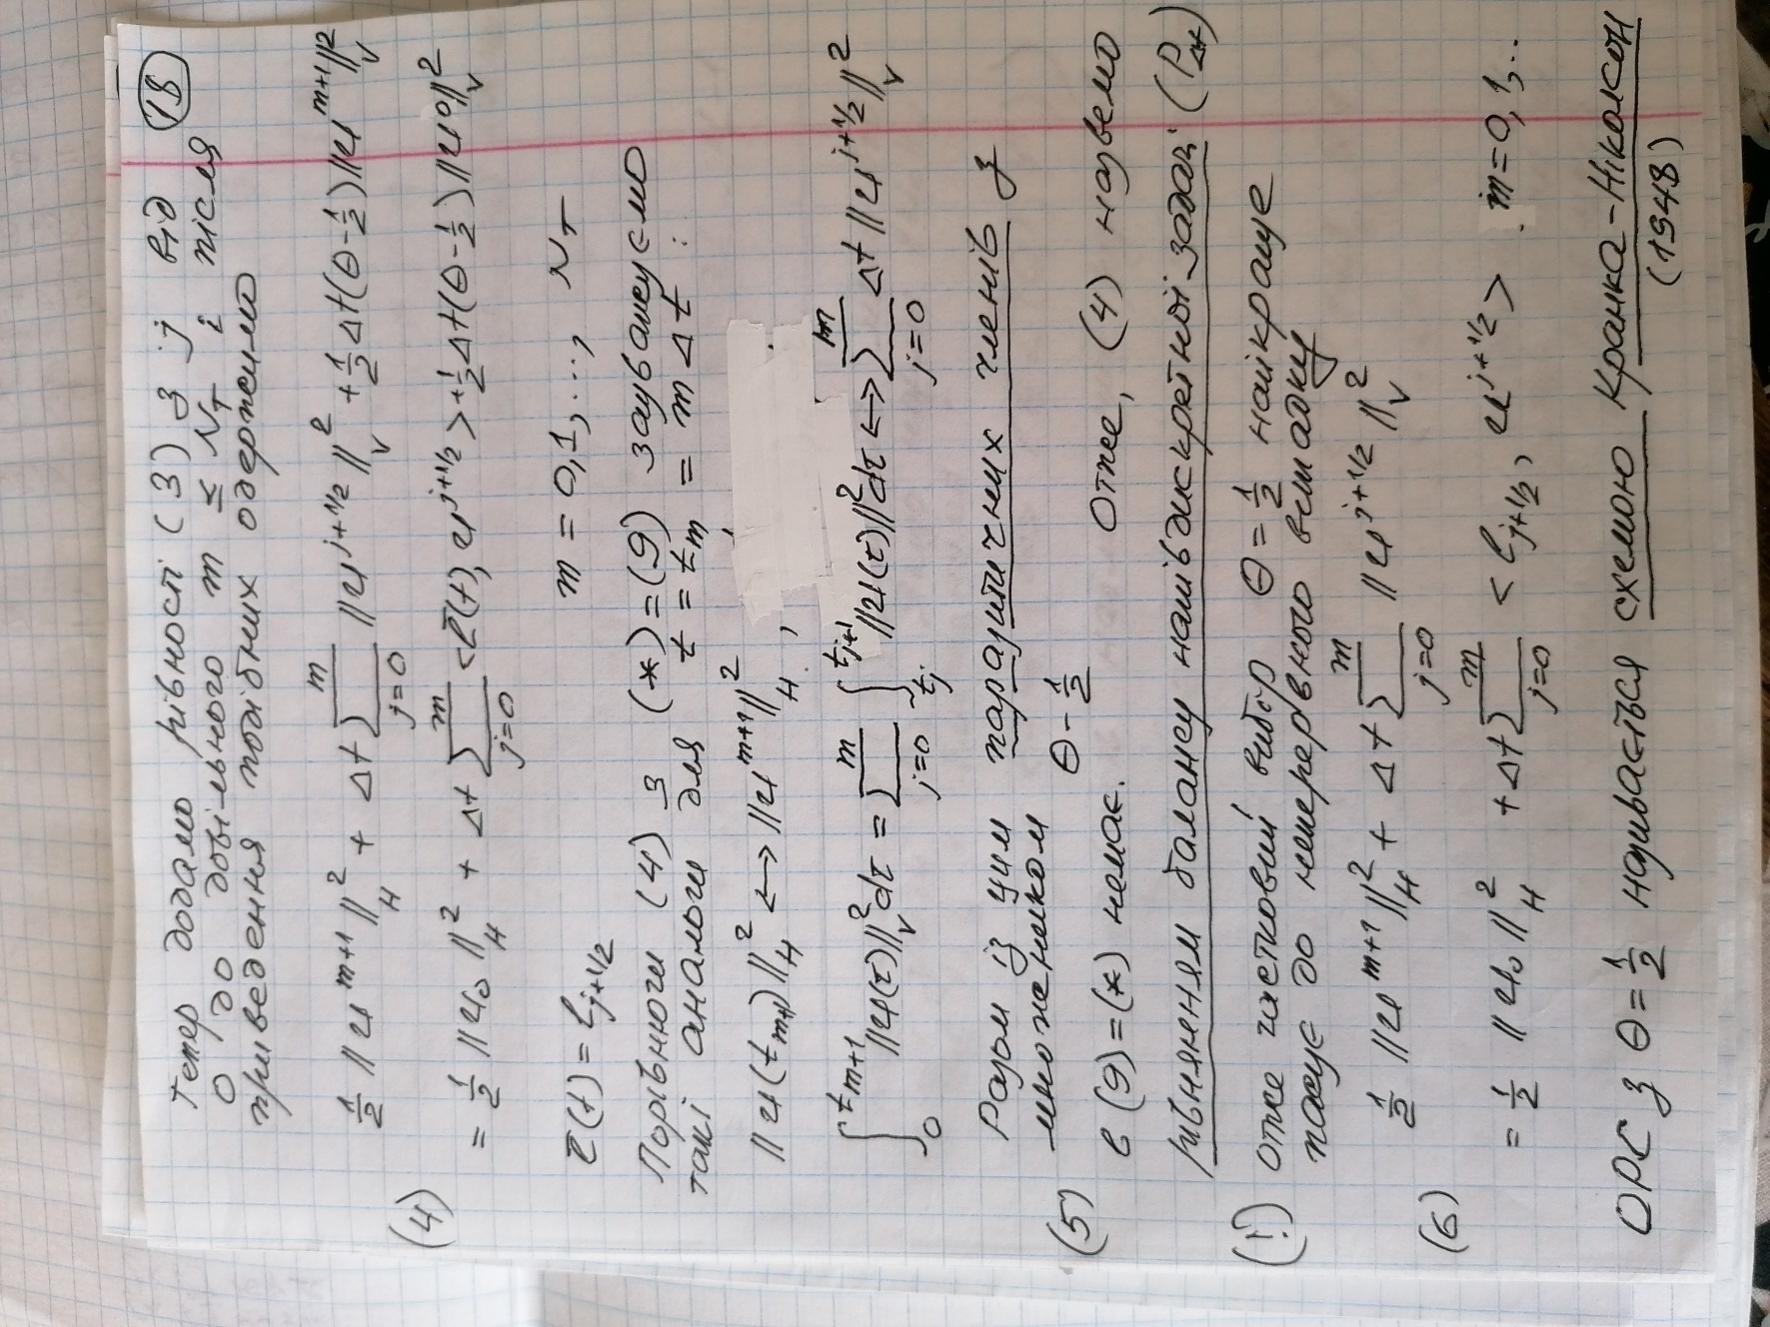 18
Тепер додамо рівності (3) з j від
0 до довільного m ≤ N_T і після
приведення подібних одержимо
1/2 ||u^{m+1}||²_H + Δt Σ_{j=0}^{m} ||u^{j+1/2}||²_V + 1/2 Δt(θ-1/2)||u^{m+1}||²_V
(4) = 1/2 ||u₀||²_H + Δt Σ_{j=0}^{m} <ℓ̄(t), u^{j+1/2}> + 1/2 Δt(θ-1/2)||u⁰||²_V
ℓ̄(t) = ℓ_{j+1/2} m = 0,1,..., N_T
Порівнюючи (4) з (*)=(9) зауважуємо
такі аналоги для t = t_m = mΔt :
||u(t_{m+1})||²_H ↔ ||u^{m+1}||²_H ,
∫_0^{t_{m+1}} ||u(τ)||²_V dτ = Σ_{j=0}^{m} ∫_{t_j}^{t_{j+1}} ||u(τ)||²dτ ↔ Σ_{j=0}^{m} Δt ||u^{j+1/2}||²_V
Разом із цим паразитичних членів з
(5) множенником θ - 1/2
в (9)=(*) немає. Отже, (4) назвемо
рівнянням балансу напівдискретної задачі (P_{Δt})
(!) Отже частковий вибір θ = 1/2 найкраще
пасує до неперервного випадку
1/2 ||u^{m+1}||²_H + Δt Σ_{j=0}^{m} ||u^{j+1/2}||²_V
(6) = 1/2 ||u₀||²_H + Δt Σ_{j=0}^{m} <ℓ_{j+1/2}, u^{j+1/2}> . m=0,1,...
ОРС з θ = 1/2 називається схемою Кранка-Ніколсон
(1948)